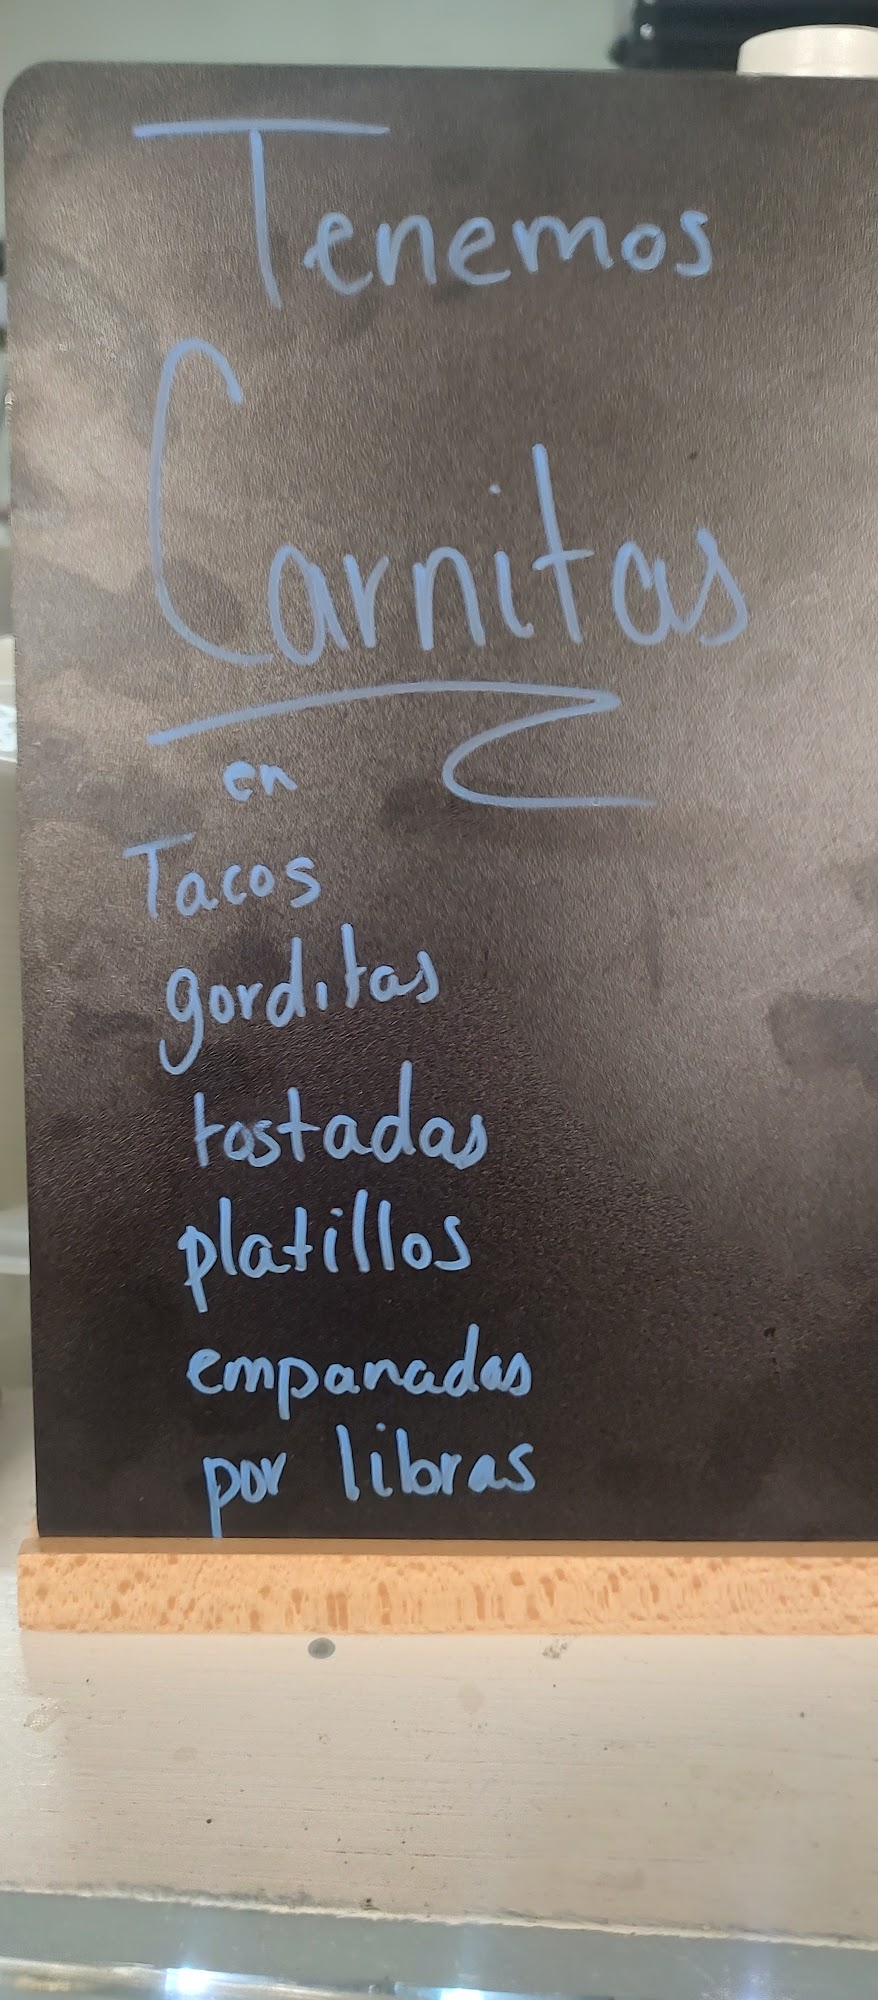 Tenemos
Carnitas
en
Tacos
gorditas
tostadas
platillos
empanadas
por libras